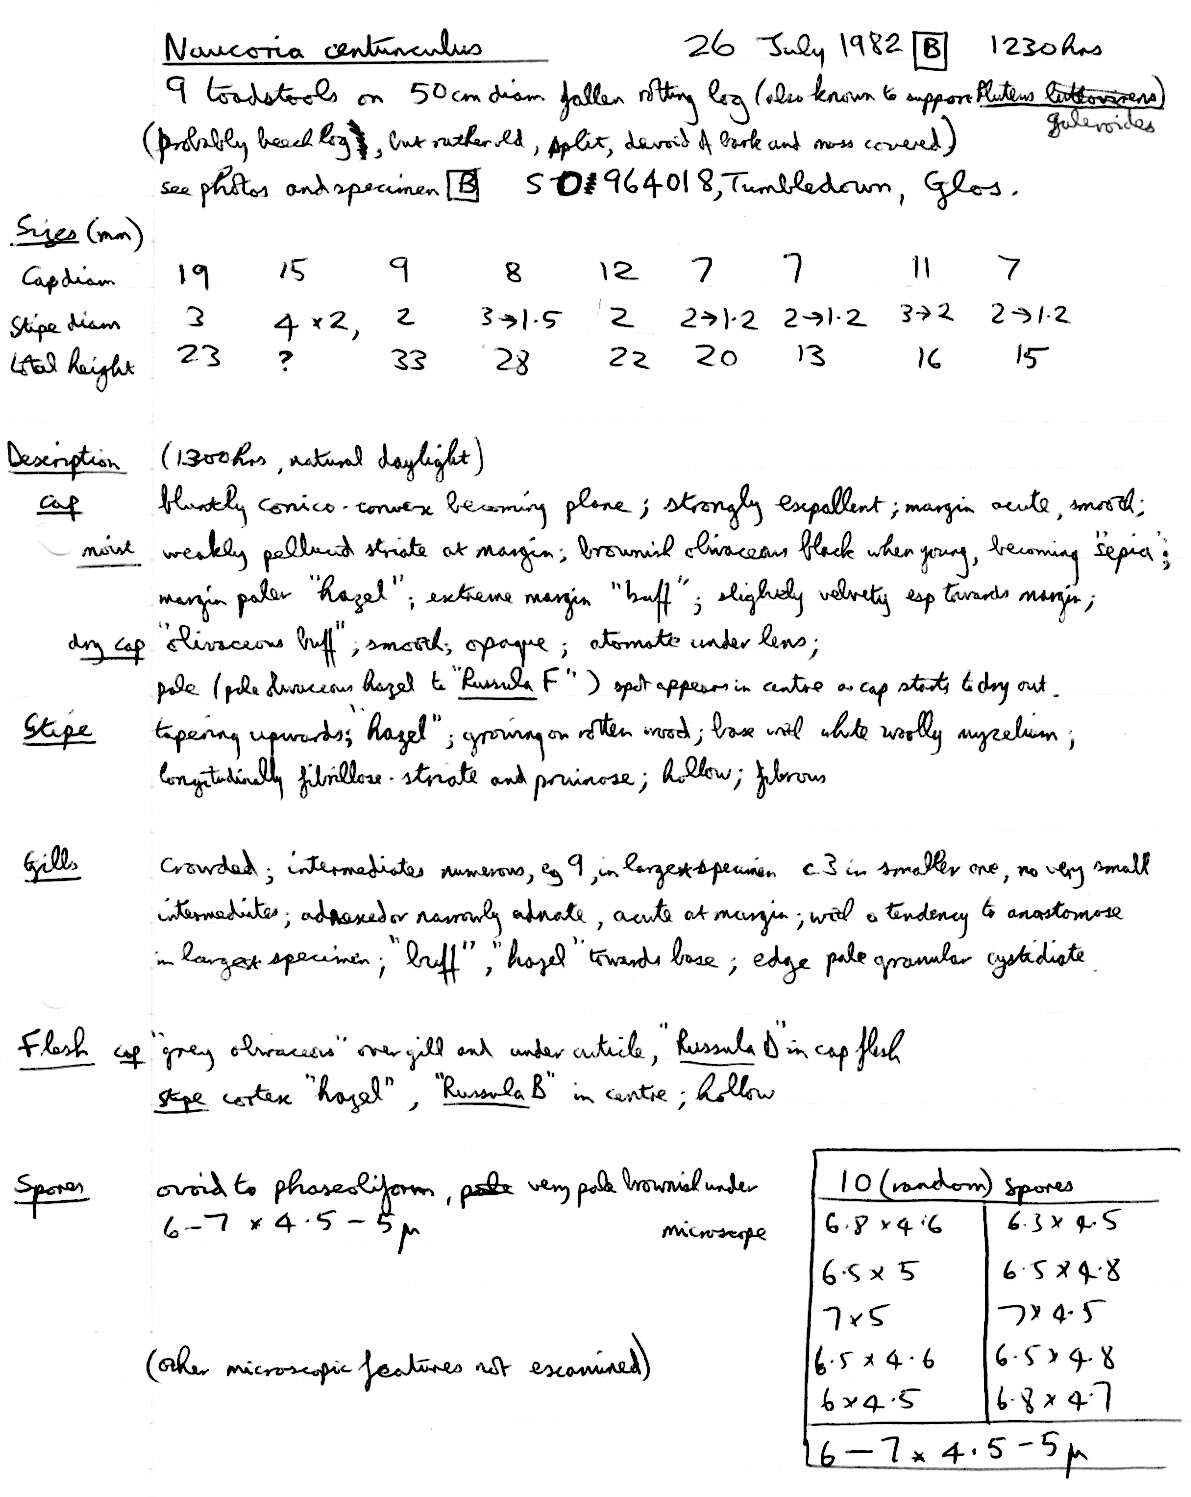 Naucoria centunculus 26 July 1982 B 1230hrs
9 toadstools on 50cm diam fallen rotting log (also known to support Pluteus luteovirens)
galeroides
(probably beech log, but rather old, split, devoid of bark and moss covered)
see photos and specimen B SO 964018, Tumbledown, Glos.
Sizes (mm)
Cap diam 19 15 9 8 12 7 7 11 7
Stipe diam 3 4 × 2, 2 3→1.5 2 2→1.2 2→1.2 3→2 2→1.2
total height 23 ? 33 28 22 20 13 16 15
Description (1300hrs, natural daylight)
cap bluntly conico-convex becoming plane; strongly expallent; margin acute, smooth;
moist weakly pellucid striate at margin; brownish olivaceous black when young, becoming "sepia";
margin paler "hazel"; extreme margin "buff"; slightly velvety esp towards margin;
dry cap "olivaceous buff"; smooth; opaque; atomate under lens;
pale (pale olivaceous hazel to "Russula F") spot appears in centre as cap starts to dry out.
Stipe tapering upwards; "hazel"; growing on rotten wood; base with white woolly mycelium;
longitudinally fibrillose-striate and pruinose; hollow; fibrous
Gills crowded; intermediates numerous, eg 9, in largest specimen c.3 in smaller one, no very small
intermediates; adnexed or narrowly adnate, acute at margin; with a tendency to anastomose
in largest specimen; "buff", "hazel" towards base; edge pale granular cystidiate.
Flesh cap "grey olivaceous" over gill and under cuticle, "Russula D" in cap flesh
stipe cortex "hazel", "Russula B" in centre; hollow
Spores ovoid to phaseoliform, pale very pale brownish under
6-7 × 4.5-5μ microscope
10 (random) spores
6.8 × 4.6 6.3 × 4.5
6.5 × 5 6.5 × 4.8
7 × 5 7 × 4.5
6.5 × 4.6 6.5 × 4.8
6 × 4.5 6.8 × 4.7
6-7 × 4.5-5μ
(other microscopic features not examined)